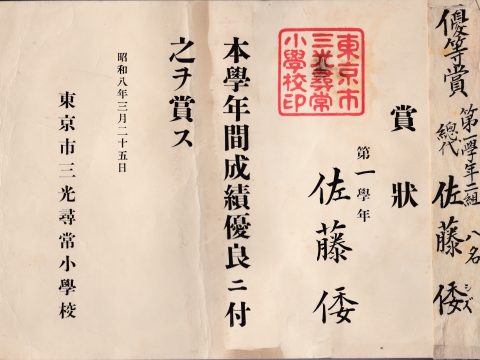 優等賞
第一學年二組 八名
總代 佐藤倭
シズ
賞狀
第一學年
佐藤倭
東京市
三光尋常
小學校印
本學年間成績優良ニ付
之ヲ賞ス
昭和八年三月二十五日
東京市三光尋常小學校